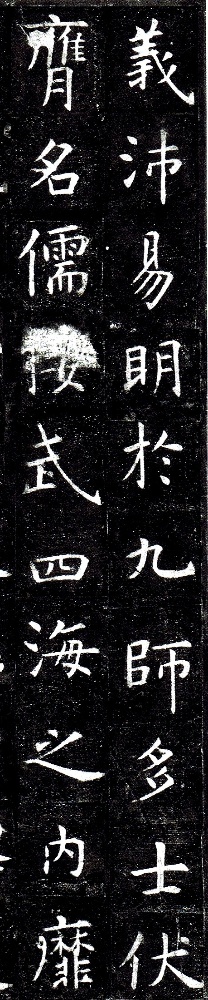 義沛易明於九師多士伏
膺名儒接武四海之内靡